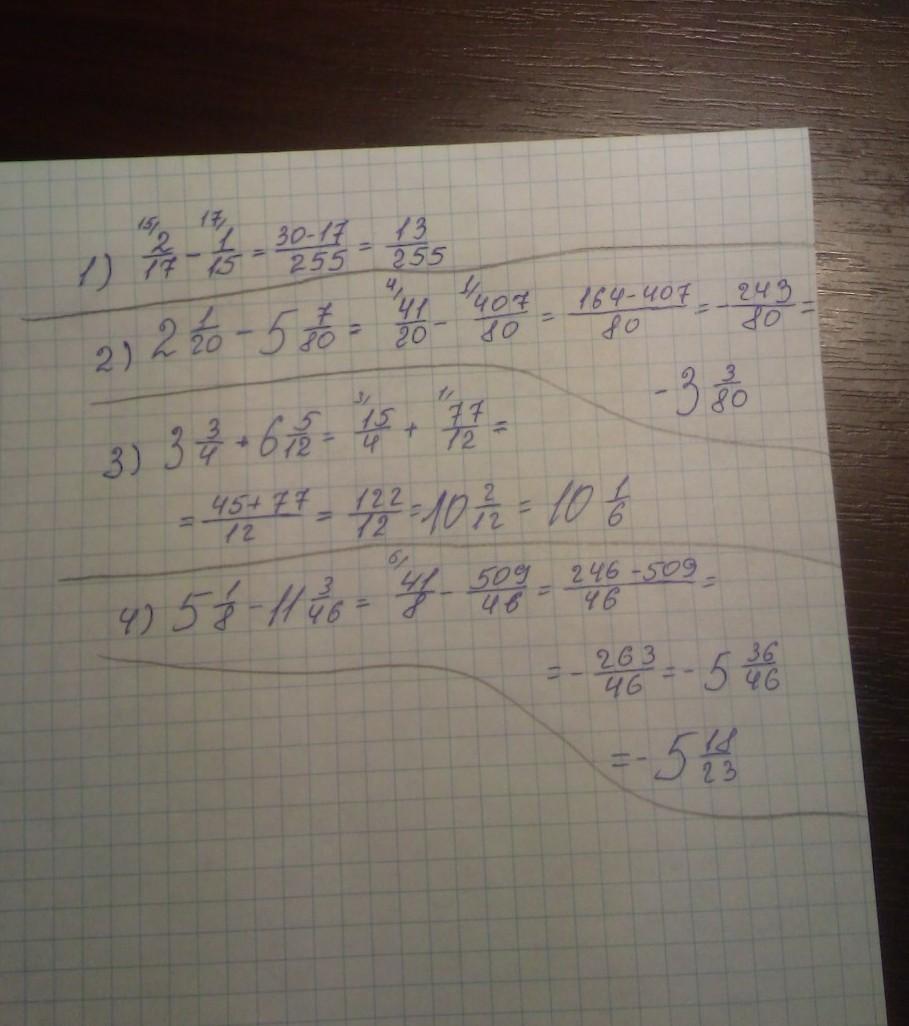 1) ¹⁵/ 2/17 - ¹⁷/ 1/15 = (30-17)/255 = 13/255
2) 2 1/20 - 5 7/80 = ⁴/ 41/20 - ¹/ 407/80 = (164-407)/80 = - 243/80 =
-3 3/80
3) 3 3/4 + 6 5/12 = ³/ 15/4 + ¹/ 77/12 =
= (45+77)/12 = 122/12 = 10 2/12 = 10 1/6
4) 5 1/8 - 11 3/46 = ⁶/ 41/8 - 509/46 = (246-509)/46 =
= - 263/46 = - 5 36/46
= - 5 18/23